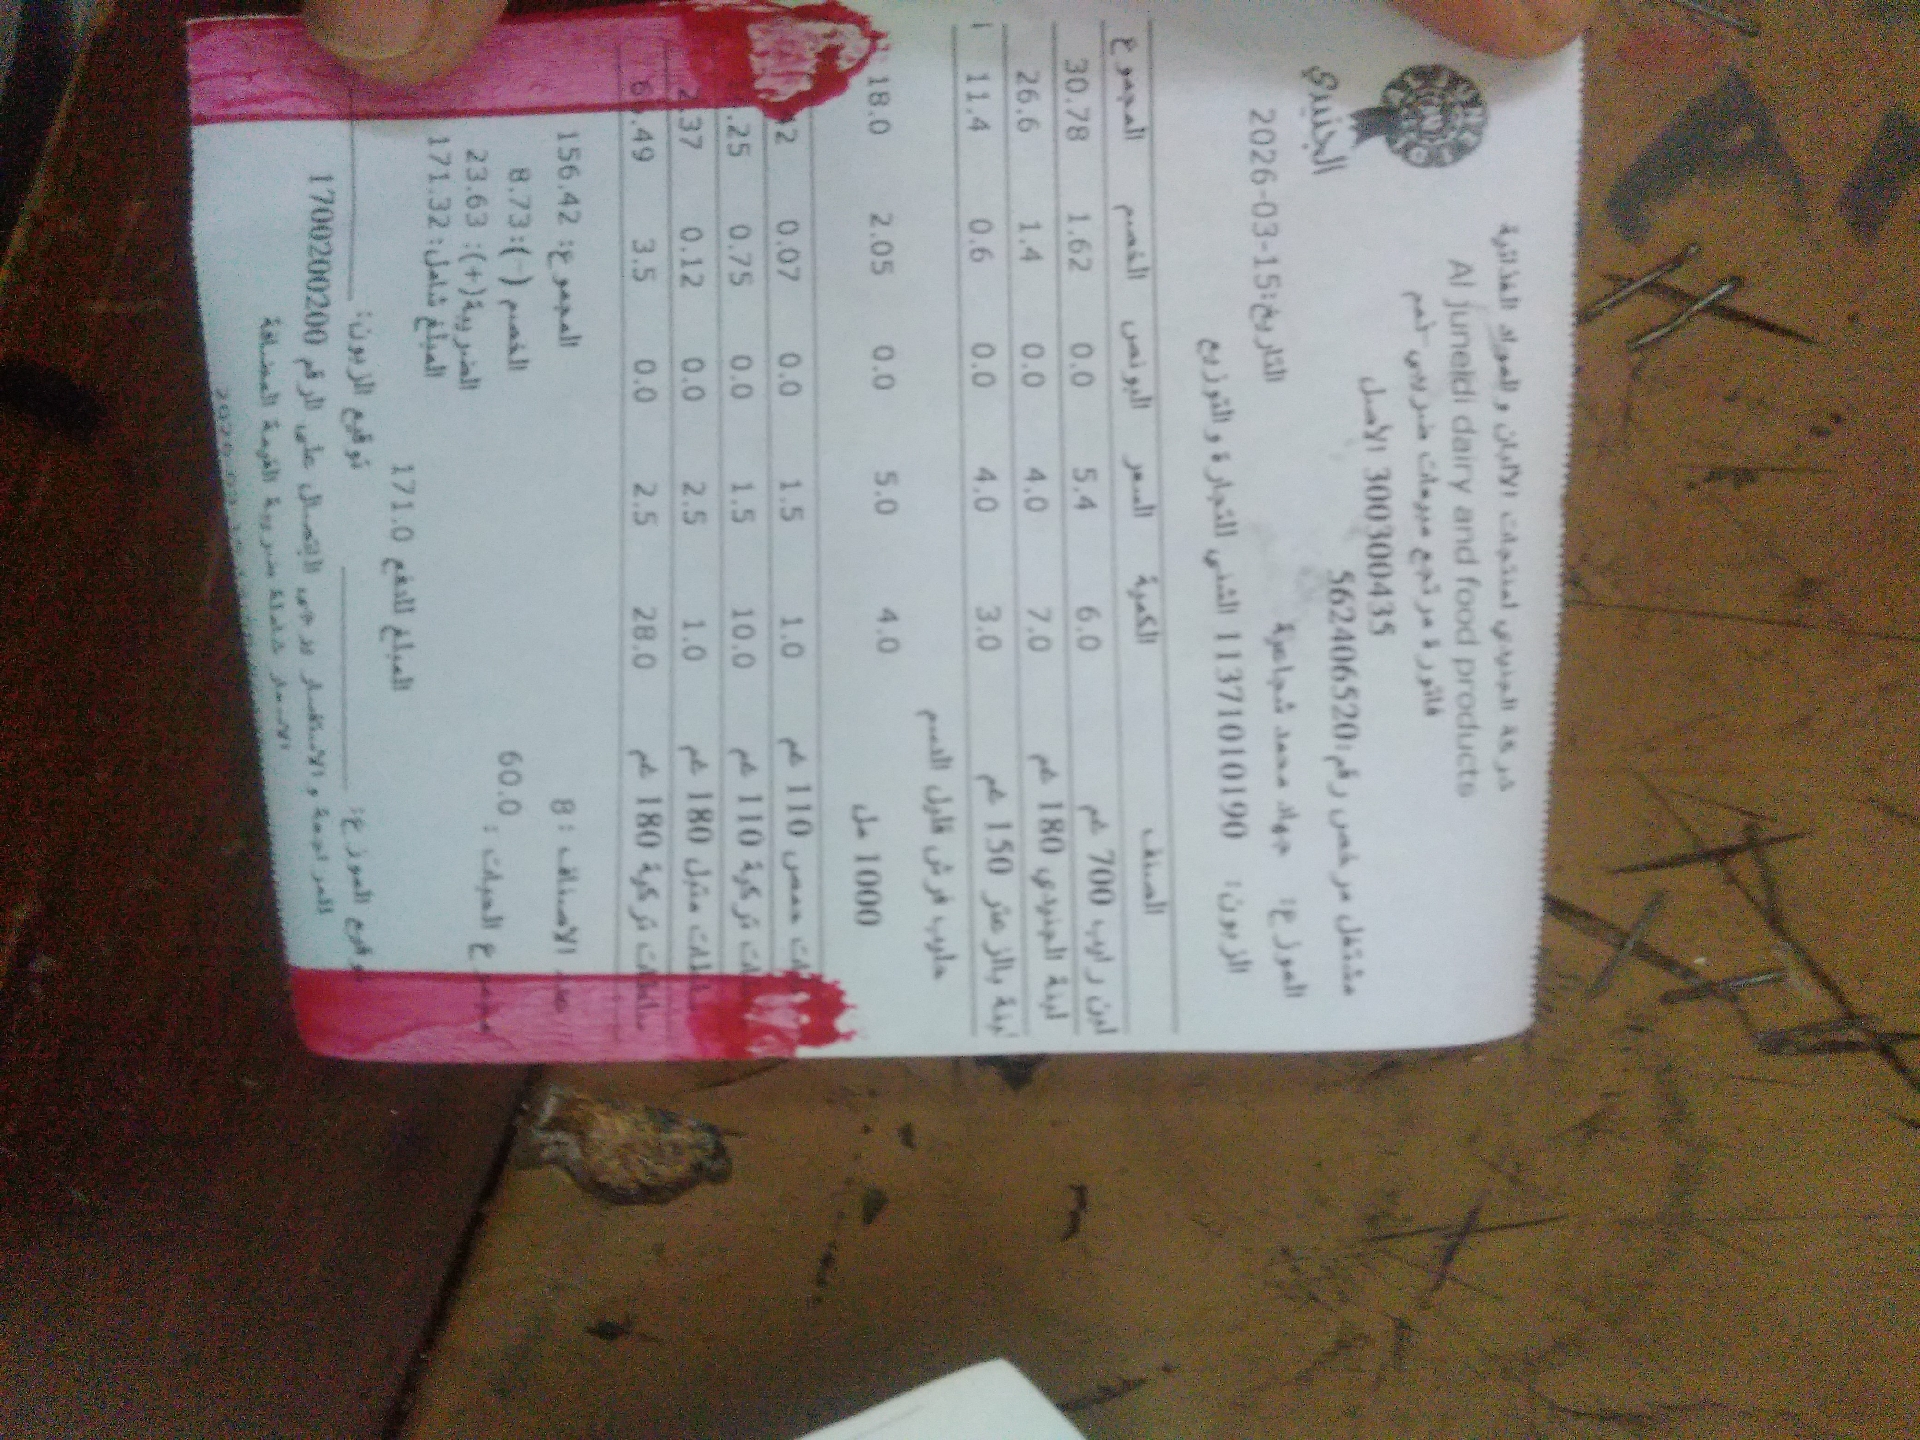 شركة الجنيدي لمنتجات الالبان والمواد الغذائية
Al juneidi dairy and food products
الجنيدي
فاتورة مرتجع مبيعات ضريبي-خصم
300300435 الاصل
مشتغل مرخص رقم:562406520
الموزع: جهاد محمد شجاعية
التاريخ:2026-03-15
الزبون: 1137101010190 الشني للتجارة والتوزيع
الصنف الكمية السعر البونص الخصم المجموع
لبن رايب 700 غم 6.0 5.4 0.0 1.62 30.78
لبنة الجنيدي 180 غم 7.0 4.0 0.0 1.4 26.6
لبنة بالزعتر 150 غم 3.0 4.0 0.0 0.6 11.4
حليب فرش قليل الدسم
1000 مل 4.0 5.0 0.0 2.05 18.0
حمص 110 غم 1.0 1.5 0.0 0.07
تركية 110 غم 10.0 1.5 0.0 0.75 .25
متبل 180 غم 1.0 2.5 0.0 0.12 2.37
سلطات تركية 180 غم 28.0 2.5 0.0 3.5 6.49
عدد الاصناف : 8
المجموع: 156.42
مجموع الحبات : 60.0
الخصم (-):8.73
الضريبة(+): 23.63
المبلغ شامل: 171.32
المبلغ للدفع 171.0
توقيع الموزع: توقيع الزبون:
للمراجعة والاستفسار يرجى الاتصال على الرقم 1700200200
الاسعار شاملة ضريبة القيمة المضافة